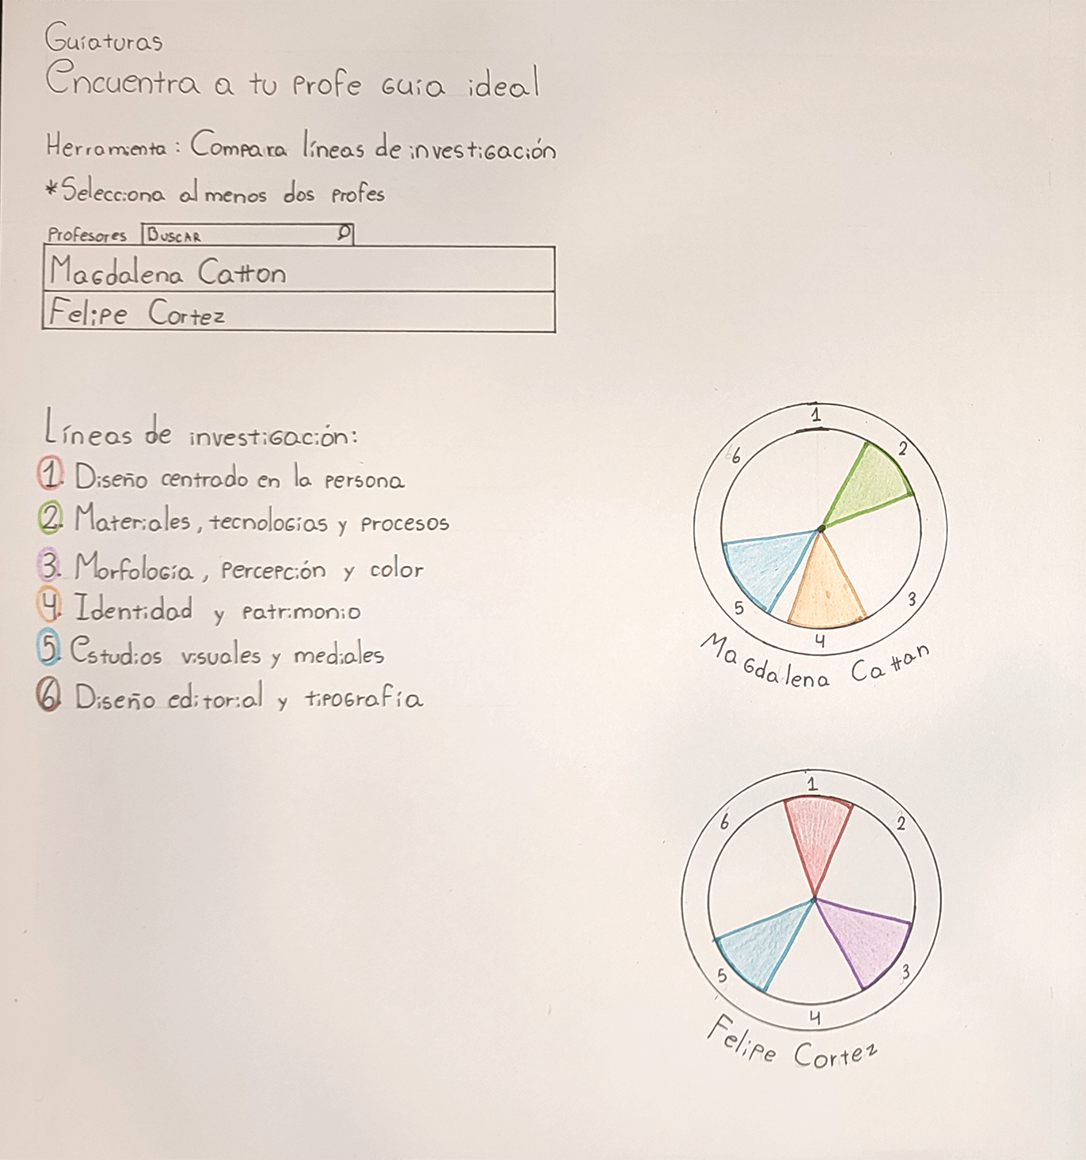 Guiaturas
Encuentra a tu profe guia ideal
Herramienta: Compara líneas de investigación
*Selecciona al menos dos profes
Profesores BUSCAR
Magdalena Catton
Felipe Cortez
Líneas de investigación:
1. Diseño centrado en la persona
2. Materiales, tecnologias y procesos
3. Morfologia, percepción y color
4. Identidad y patrimonio
5. Estudios visuales y mediales
6. Diseño editorial y tipografía
1
2
3
4
5
6
Magdalena Cattan
1
2
3
4
5
6
Felipe Cortez